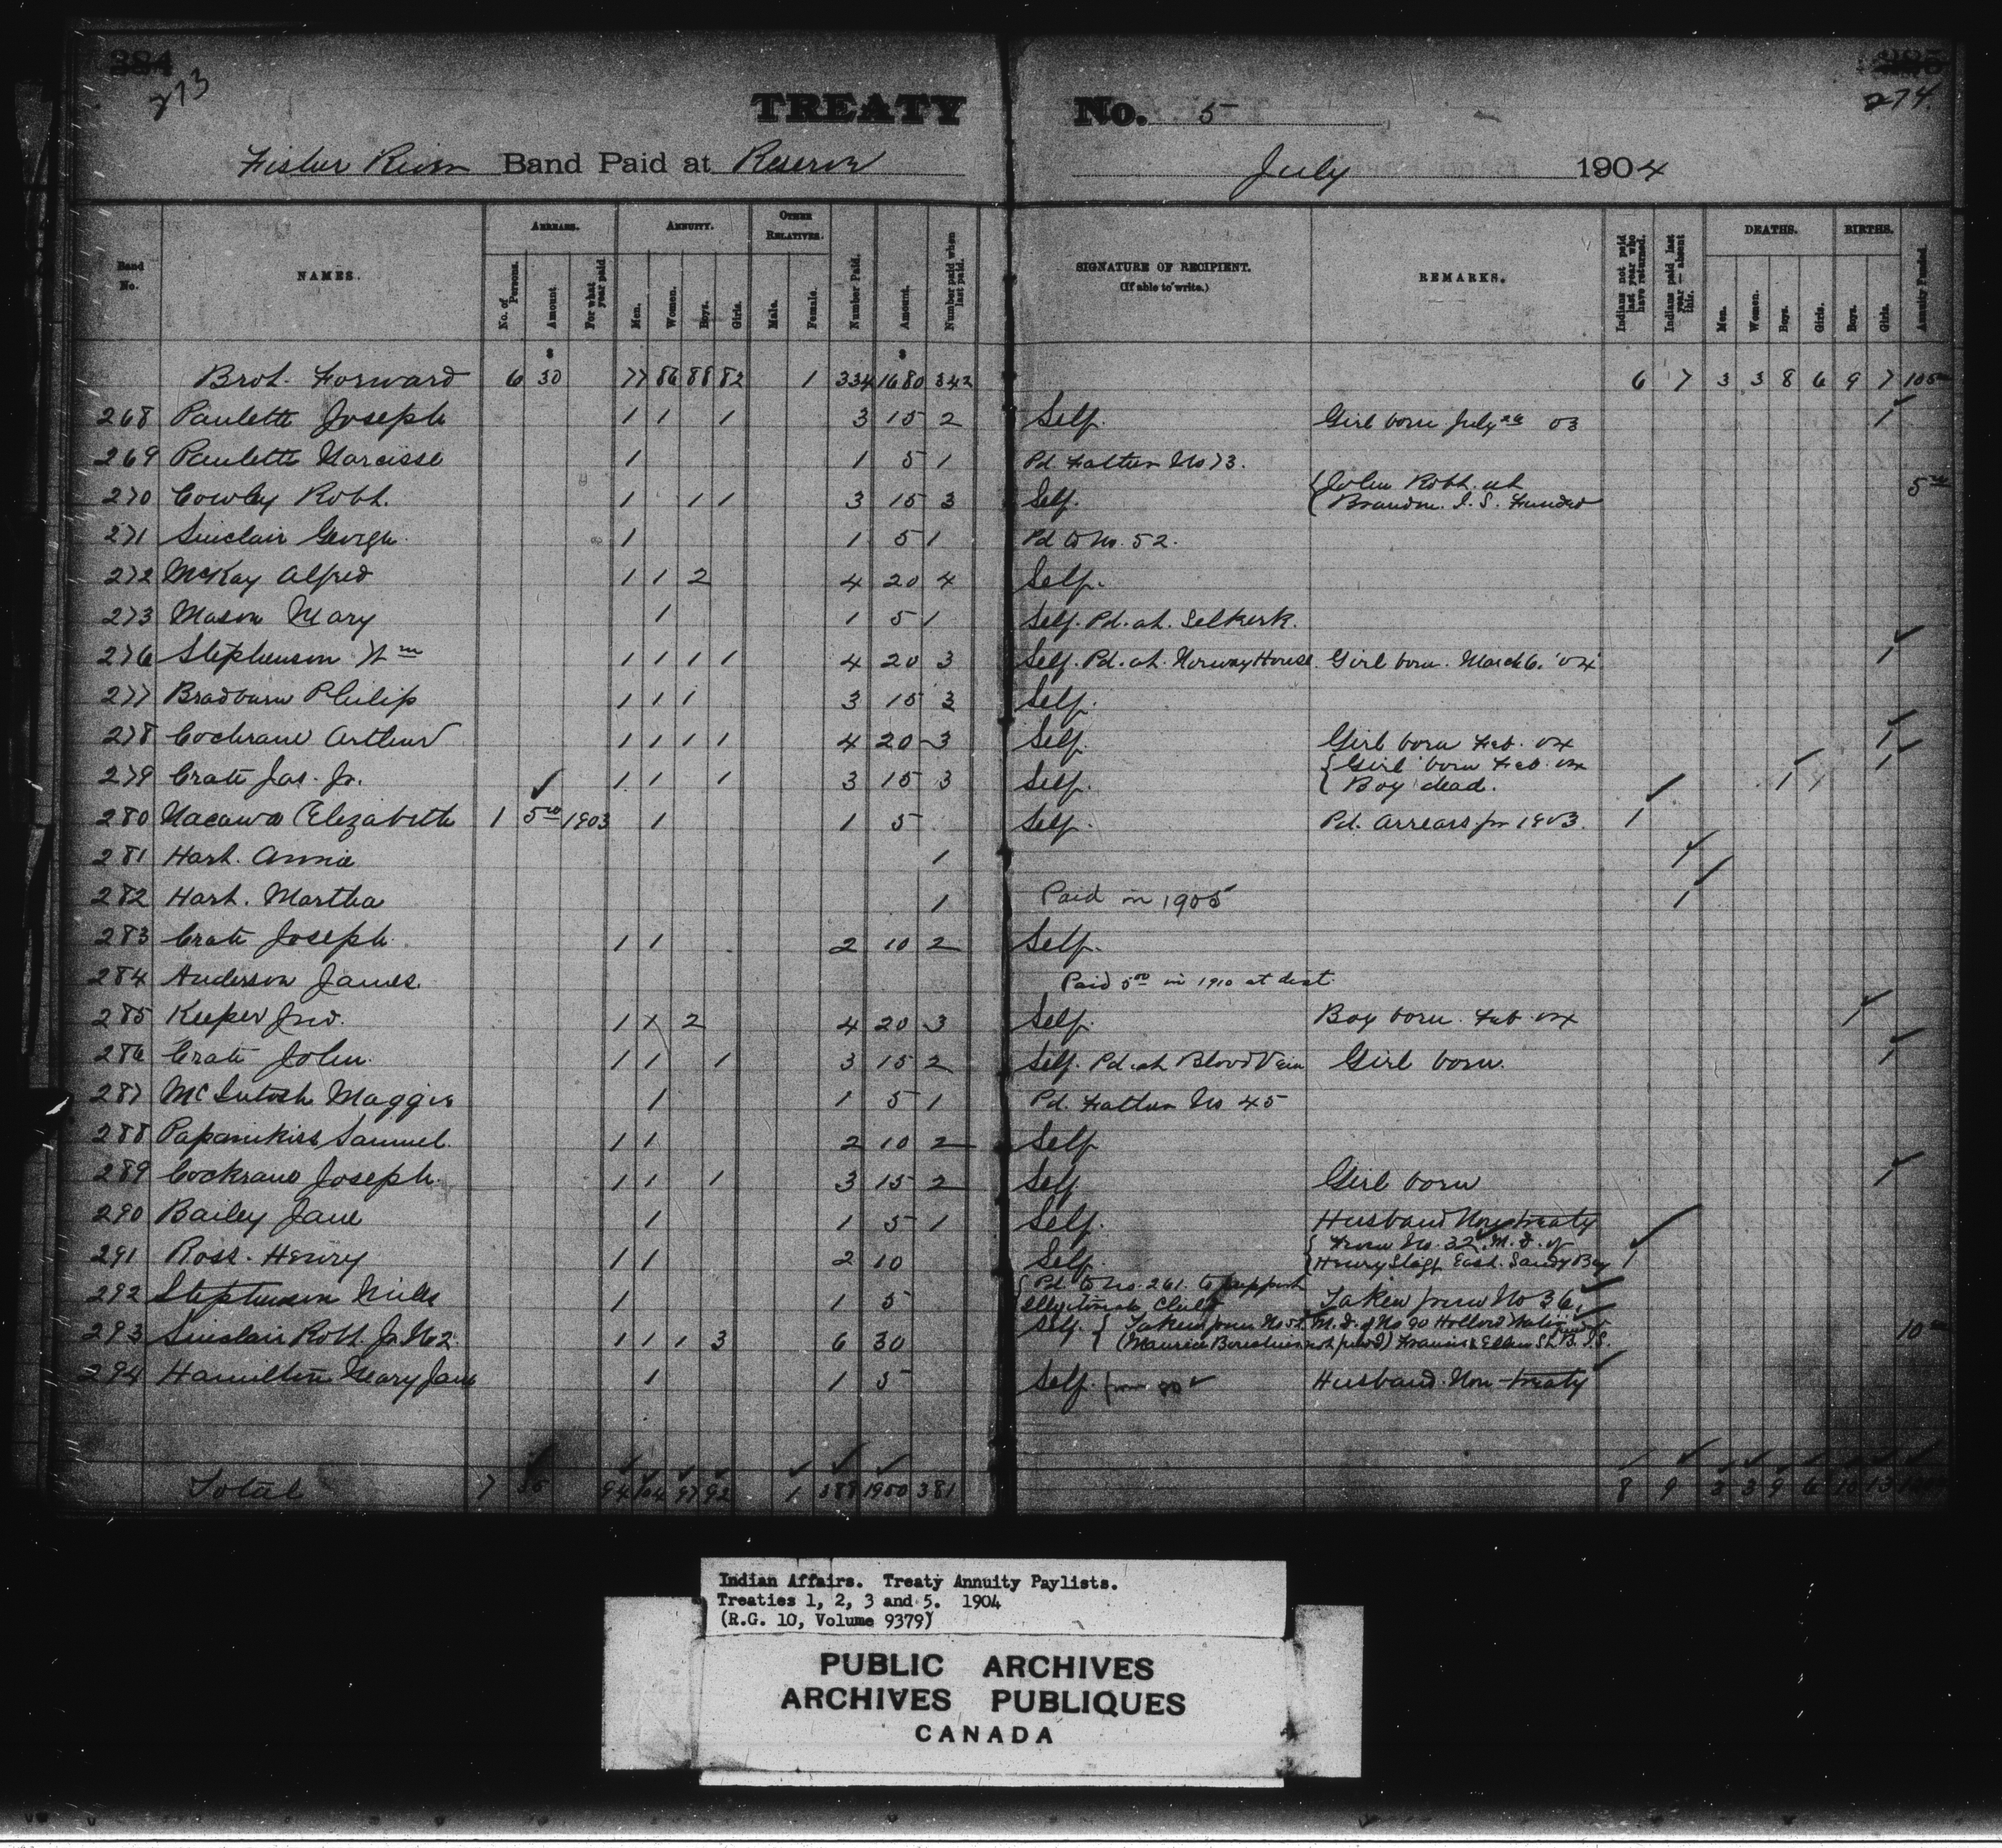 384 385
273 274
TREATY No. 5
Fisher River Band Paid at Reserve July 1904
Band No. NAMES. ARREARS. ANNUITY. OTHER RELATIVES. Number Paid. Amount. Number paid when last paid. SIGNATURE OF RECIPIENT. (If able to write.) REMARKS. Indians not paid last year who have returned. Indians paid last year — absent this. DEATHS. BIRTHS. Annuity Funded
No. of Persons. Amount For what year paid Men. Women. Boys. Girls. Male. Female. Men. Women. Boys. Girls. Boys. Girls.
$ $
Brot. Forward 6 30 77 86 88 82 1 334 1680 342 6 7 3 3 8 6 9 7 105
268 Paulette Joseph 1 1 1 3 15 2 Self. Girl born July 03 1
269 Paulette Narcisse 1 1 5 1 Pd. Father No 73.
270 Cowley Robt. 1 1 1 3 15 3 Self. { John Robt. at
Brandon. I. S. Funded 5
271 Sinclair George 1 1 5 1 Pd to No. 52.
272 McKay Alfred 1 1 2 4 20 4 Self.
273 Mason Mary 1 1 5 1 Self. Pd. at. Selkerk.
276 Stephenson Wm 1 1 1 1 4 20 3 Self. Pd. at. Norway House Girl born. March 6. '04 1
277 Bradburn Philip 1 1 1 3 15 3 Self.
278 Cochrane Arthur 1 1 1 1 4 20 3 Self. Girl born Feb. 04 1
279 Crate Jas. Jr. 1 1 1 3 15 3 Self. { Girl born Feb. 04
Boy dead. 1 1
280 Nacawa Elizabeth 1 5.00 1903 1 1 5 Self. Pd. Arrears for 1903. 1
281 Hart. Annie 1 1
282 Hart. Martha 1 Paid in 1905 1
283 Crate Joseph 1 1 2 10 2 Self.
284 Anderson James. Paid 5.00 in 1910 at dest.
285 Keeper Jno. 1 1 2 4 20 3 Self. Boy born. Feb 04 1
286 Crate John. 1 1 1 3 15 2 Self. Pd. at Blood Vein Girl born. 1
287 McIntosh Maggie 1 1 5 1 Pd. Father No 45
288 Papanikiss Samuel. 1 1 2 10 2 Self
289 Cockrane Joseph. 1 1 1 3 15 2 Self Girl born 1
290 Bailey Jane 1 1 5 1 Self. Husband Non treaty
291 Ross. Henry 1 1 2 10 Self. { From No. 32. M. d. of
Henry Stagg East. Sandy Bay 1
292 Stephenson Miles 1 1 5 { Pd. to No. 261. to support
Illegitimate Child Taken from No 36.
293 Sinclair Robt. Jr. No 2. 1 1 1 3 6 30 Self. { Taken from No 52 M. d. of No 90 Hollow Water
(Maurice not ) Francis & Ellen St. B. I. S. 10
294 Hamilton Mary Jane 1 1 5 Self. from 80 Husband. Non-treaty
Total 7 35 94 104 97 92 1 388 1950 381 8 9 3 3 9 6 10 13 120
Indian Affairs. Treaty Annuity Paylists.
Treaties 1, 2, 3 and 5. 1904
(R.G. 10, Volume 9379)
PUBLIC ARCHIVES
ARCHIVES PUBLIQUES
CANADA